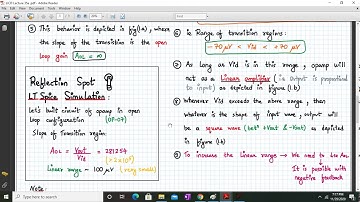 ③ This behavior is depicted in fig(1.a), where
the slope of the transition is the open
loop gain AOL = ∞
Reflection Spot
LT Spice Simulation:
Let's built circuit of opamp in open
loop configuration (OP-07)
Slope of Transition region:
AOL = Vout/Vid = 281254
(≈2×10⁵)
Linear range ~ 100 μV (very small)
Note:
⑥ ie Range of transition regions:
-70 μV < Vid < +70 μV
⑦ As long as Vid is in this range, opamp will
act as a Linear amplifier (ie output is proportional
to input) as depicted in figure (1.b)
⑧ Whenever Vid exceeds the above range, then
whatever is the shape of input wave, output will
be a square wave (+Vsat & -Vsat) as depicted
in figure (1.b)
⑨ To increase the linear range → We need to
It is possible with
negative feedback